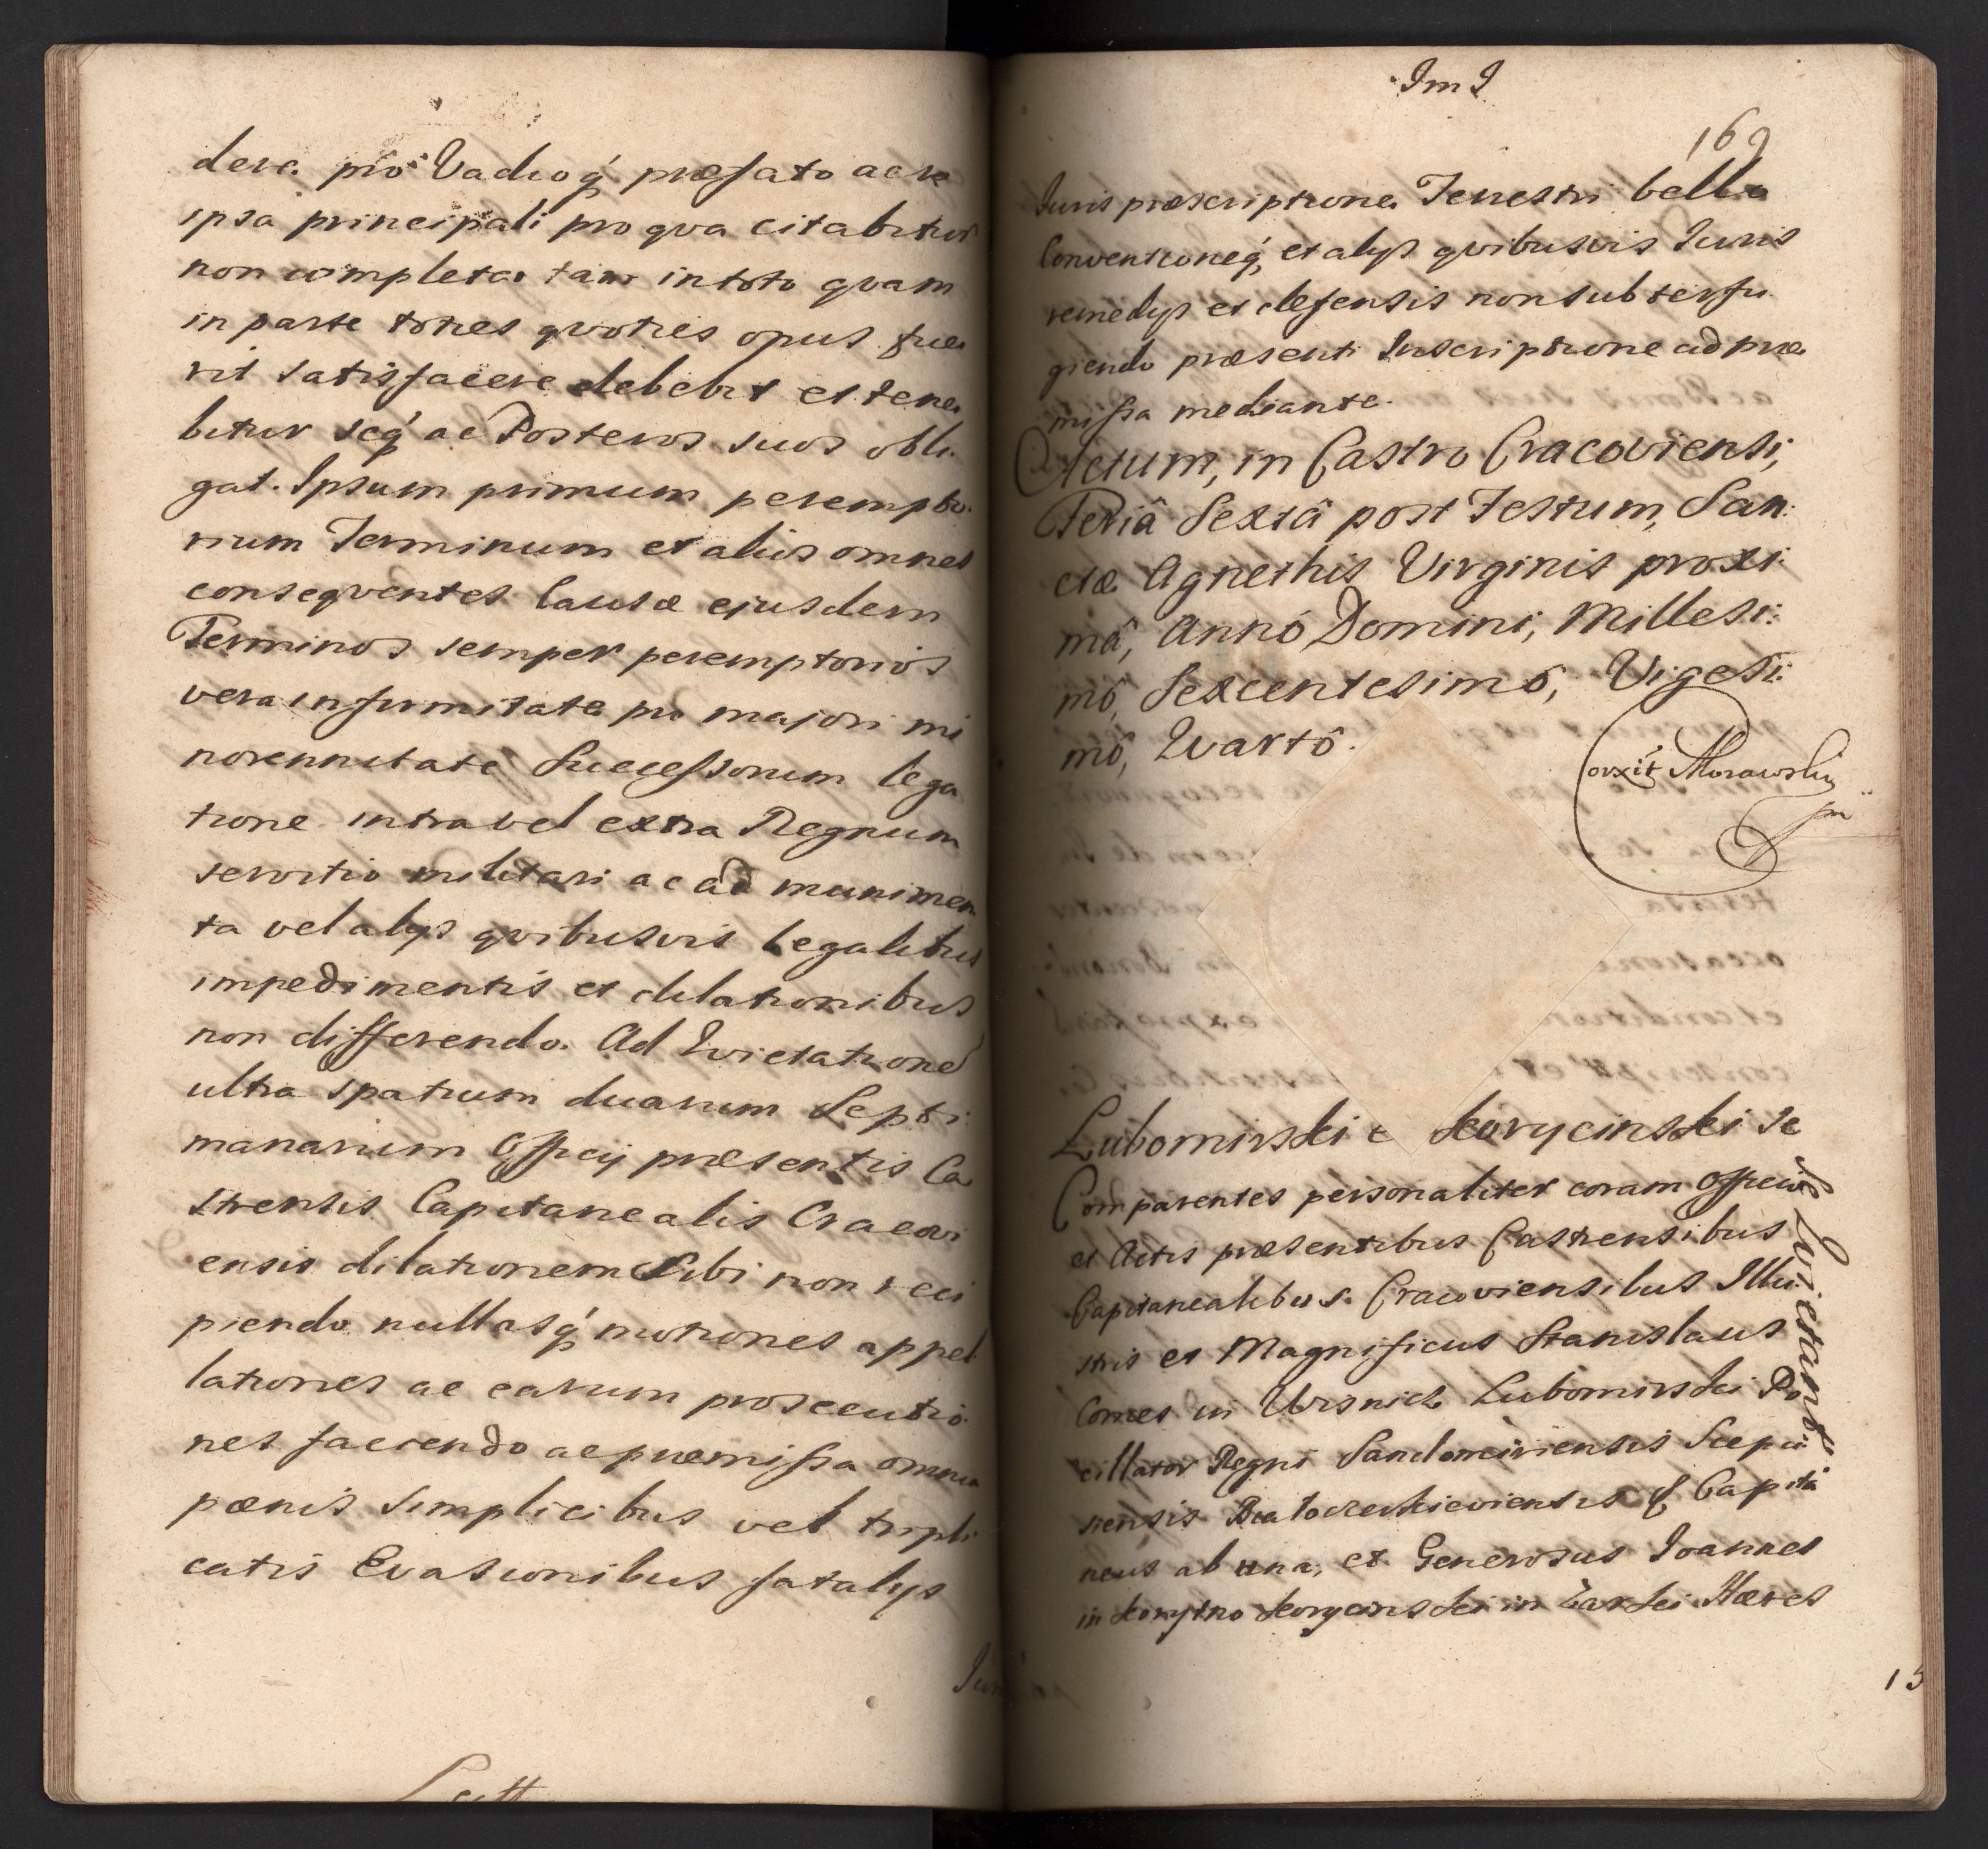 dere. pro Vadioq́ præfato ac re
ipsa principali pro qva citabitur
non completa tam in toto qvam
in parte toties qvoties opus fue
rit satisfacere debebit et tene
bitur seq́ ac Posteros suos obli
gat. Ipsum primum perempto
rium Terminum et alios omnes
conseqventes Causæ ejusdem
Terminos semper peremptorios
vera infirmitate pro majori mi
norennitate Successorum lega
tione intra vel extra Regnum
servitio militari ac ad munimen
ta vel alijs qvibusvis legalibus
impedimentis et dilationibus
non differendo. Ad Evictatione
ultra spatium duarum Septi
manarum Officij præsentis Ca
strensis Capitanealis Cracovi
ensis dilationem Sibi non reci
piendo nullasq́ motiones appel
lationes ac earum prosecutio
nes faciendo ac præmissa omnia
pœnis simplicibus vel tripli
catis Evasionibus fatalijs
Juris
ImI
169
Juris præscriptione Terrestri bello
Conventioneq́ et alijs qvibusvis Juris
remedijs et defensis non subterfu
giendo præsenti Inscriptione ad præ
missa mediante.
Actum, in Castro Cracoviensi,
Feriâ Sextâ post Festum, San:
ctæ Agnethis Virginis proxi:
mâ, Annô Domini, Millesi:
mô, Sexcentesimô, Vigesi:
mô, Qvartô.
Corrxit Morawski
mp
Lubomirski c Korycinski Se
Se Evictant
Comparentes personaliter coram Officio
et Actis præsentibus Castrensibus
Capitanealibus Cracoviensibus Illu
stris et Magnificus Stanislaus
Comes in Wisnicz Lubomirski Po
cillator Regni Sandomiriensis Scepu
siensis Białocerkieviensis & Capita
neus ab una, et Generosus Joannes
in Korytno Korycinski in Żarki Hæres
15